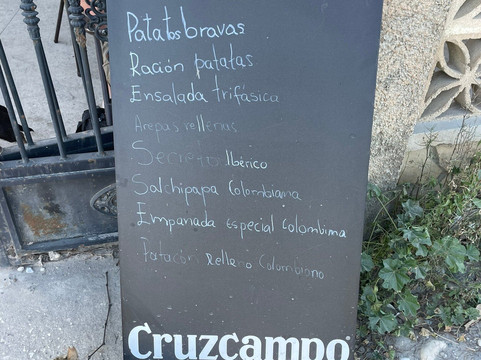 Patatas bravas
Ración patatas
Ensalada trifásica
Arepas rellenas
Secreto Ibérico
Salchipapa Colombiana
Empanada especial Colombima
Patacón relleno Colombiano
Cruzcampo